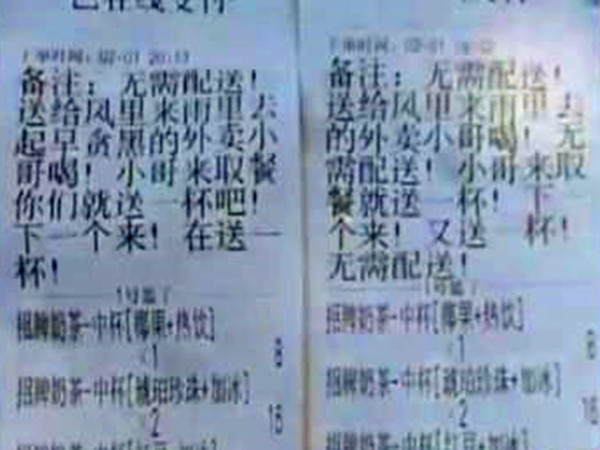 已在线支付
下单时间：02-01 20:13
备注：无需配送！
送给风里来雨里去
起早贪黑的外卖小
哥喝！小哥来取餐
你们就送一杯吧！
下一个来！在送一
杯！
1号篮子
招牌奶茶-中杯[椰果+热饮]
×1 8
招牌奶茶-中杯[琥珀珍珠+加冰]
×2 16
下单时间：02-01
备注：无需配送！
送给风里来雨里去
的外卖小哥喝！无
需配送！小哥来取
餐就送一杯！下一
个来！又送一杯！
无需配送！
1号篮子
招牌奶茶-中杯[椰果+热饮]
×1 8
招牌奶茶-中杯[琥珀珍珠+加冰]
×2 16
招牌奶茶-中杯[红豆+加冰]